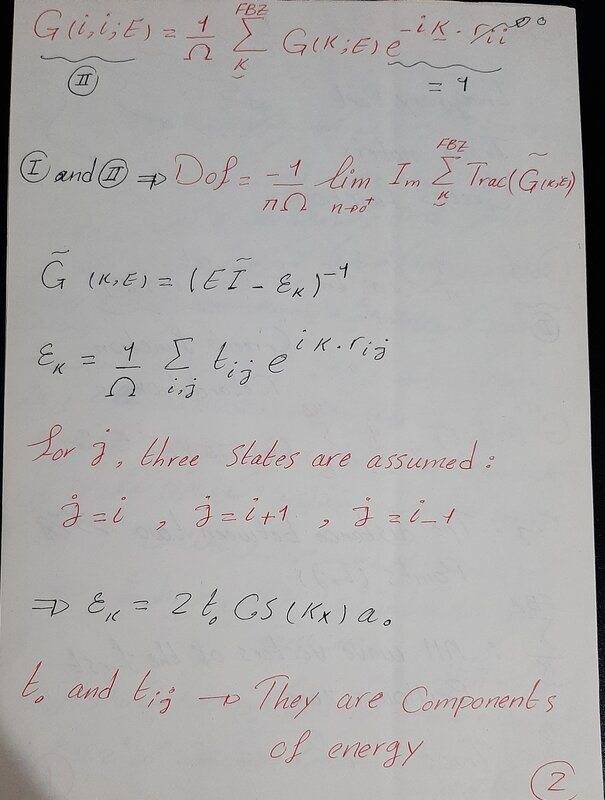 G(i,i;E) = 1/Ω Σ_K^FBZ G(K;E) e^{-iK·r_ii} → 0
II = 1
I and II ⇒ Dof = -1/πΩ lim_{n→0⁺} Im Σ_K^FBZ Trac(G̃(K;E))
G̃ (K,E) = (EĨ - ε_K)⁻¹
ε_K = 1/Ω Σ_{i,j} t_ij e^{iK·r_ij}
for j, three states are assumed:
j=i , j=i+1 , j=i-1
⇒ ε_K = 2t₀ Cos(Kx)a₀
t₀ and t_ij → They are Components
of energy
2